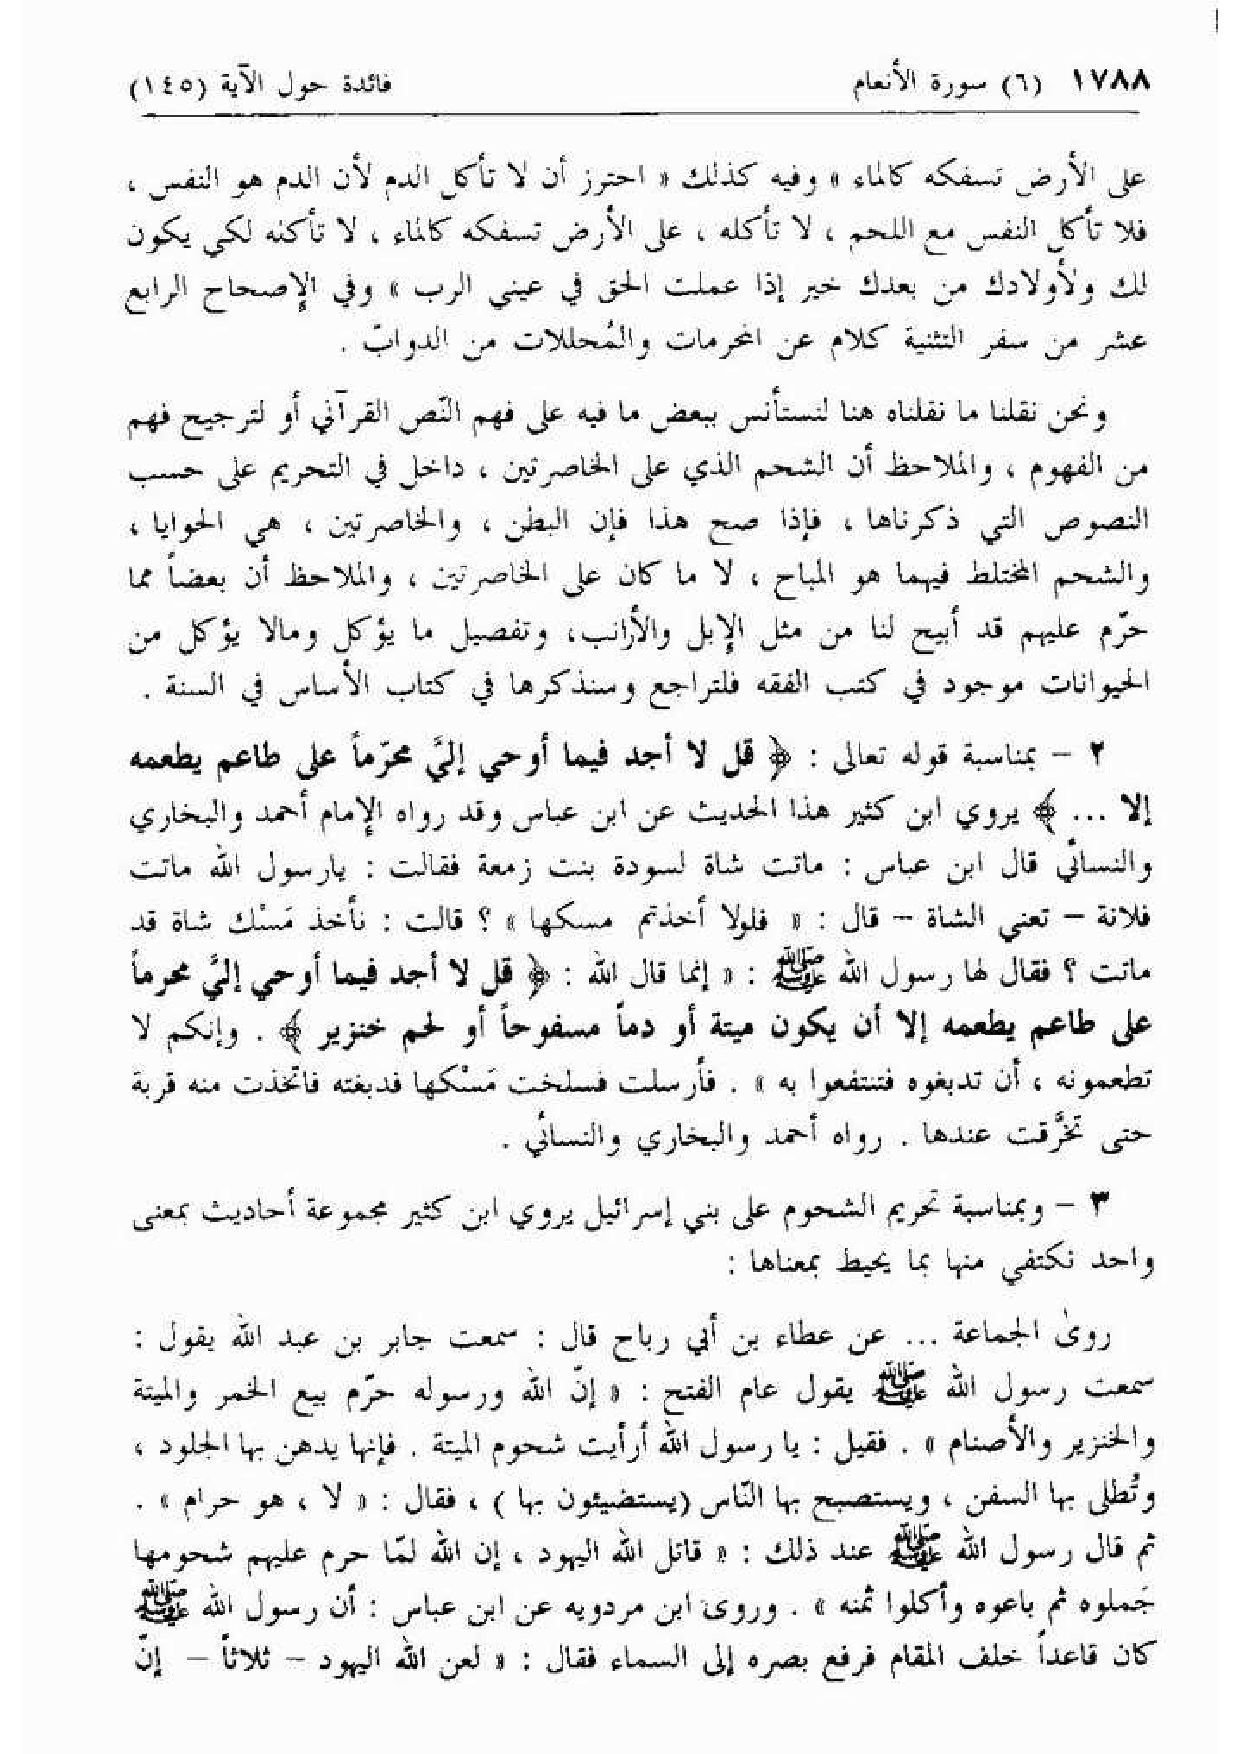 ١٧٨٨ (٦) سورة الأنعام فائدة حول الآية (١٤٥)
على الأرض تسفكه كالماء » وفيه كذلك « احترز أن لا تأكل الدم لأن الدم هو النفس ،
فلا تأكل النفس مع اللحم ، لا تأكله ، على الأرض تسفكه كالماء ، لا تأكله لكي يكون
لك ولأولادك من بعدك خير إذا عملت الحق في عيني الرب » وفي الإصحاح الرابع
عشر من سفر التثنية كلام عن المحرمات والمُحللات من الدوابّ .
ونحن نقلنا ما نقلناه هنا لنستأنس ببعض ما فيه على فهم النّص القرآني أو لترجيح فهم
من الفهوم ، والملاحظ أن الشحم الذي على الخاصرتين ، داخل في التحريم على حسب
النصوص التي ذكرناها ، فإذا صح هذا فإن البطن ، والخاصرتين ، هي الحوايا ،
والشحم المختلط فيهما هو المباح ، لا ما كان على الخاصرتين ، والملاحظ أن بعضاً مما
حرّم عليهم قد أبيح لنا من مثل الإبل والأرانب، وتفصيل ما يؤكل ومالا يؤكل من
الحيوانات موجود في كتب الفقه فلتراجع وسنذكرها في كتاب الأساس في السنة .
٢ – بمناسبة قوله تعالى : ﴿ قل لا أجد فيما أوحي إليَّ محرّماً على طاعم يطعمه
إلا ... ﴾ يروي ابن كثير هذا الحديث عن ابن عباس وقد رواه الإمام أحمد والبخاري
والنسائي قال ابن عباس : ماتت شاة لسودة بنت زمعة فقالت : يارسول الله ماتت
فلانة – تعني الشاة – قال : « فلولا أخذتم مسكها » ؟ قالت : نأخذ مَسْك شاة قد
ماتت ؟ فقال لها رسول الله ﷺ : « إنما قال الله : ﴿ قل لا أجد فيما أوحي إليَّ محرماً
على طاعم يطعمه إلا أن يكون ميتة أو دماً مسفوحاً أو لحم خنزير ﴾ . وإنكم لا
تطعمونه ، أن تدبغوه فتنتفعوا به » . فأرسلت فسلخت مَسْكها فدبغته فاتّخذت منه قربة
حتى تخرَّقت عندها . رواه أحمد والبخاري والنسائي .
٣ – وبمناسبة تحريم الشحوم على بني إسرائيل يروي ابن كثير مجموعة أحاديث بمعنى
واحد نكتفي منها بما يحيط بمعناها :
روىٰ الجماعة ... عن عطاء بن أبي رباح قال : سمعت جابر بن عبد الله يقول :
سمعت رسول الله ﷺ يقول عام الفتح : « إنّ الله ورسوله حرّم بيع الخمر والميتة
والخنزير والأصنام » . فقيل : يا رسول الله أرأيت شحوم الميتة . فإنها يدهن بها الجلود ،
وتُطلى بها السفن ، ويستصبح بها النّاس (يستضيئون بها ) ، فقال : « لا ، هو حرام » .
ثم قال رسول الله ﷺ عند ذلك : « قاتل الله اليهود ، إن الله لمّا حرم عليهم شحومها
جَملوه ثم باعوه وأكلوا ثمنه » . وروى ابن مردويه عن ابن عباس : أن رسول الله ﷺ
كان قاعداً خلف المقام فرفع بصره إلى السماء فقال : « لعن الله اليهود – ثلاثاً – إنّ